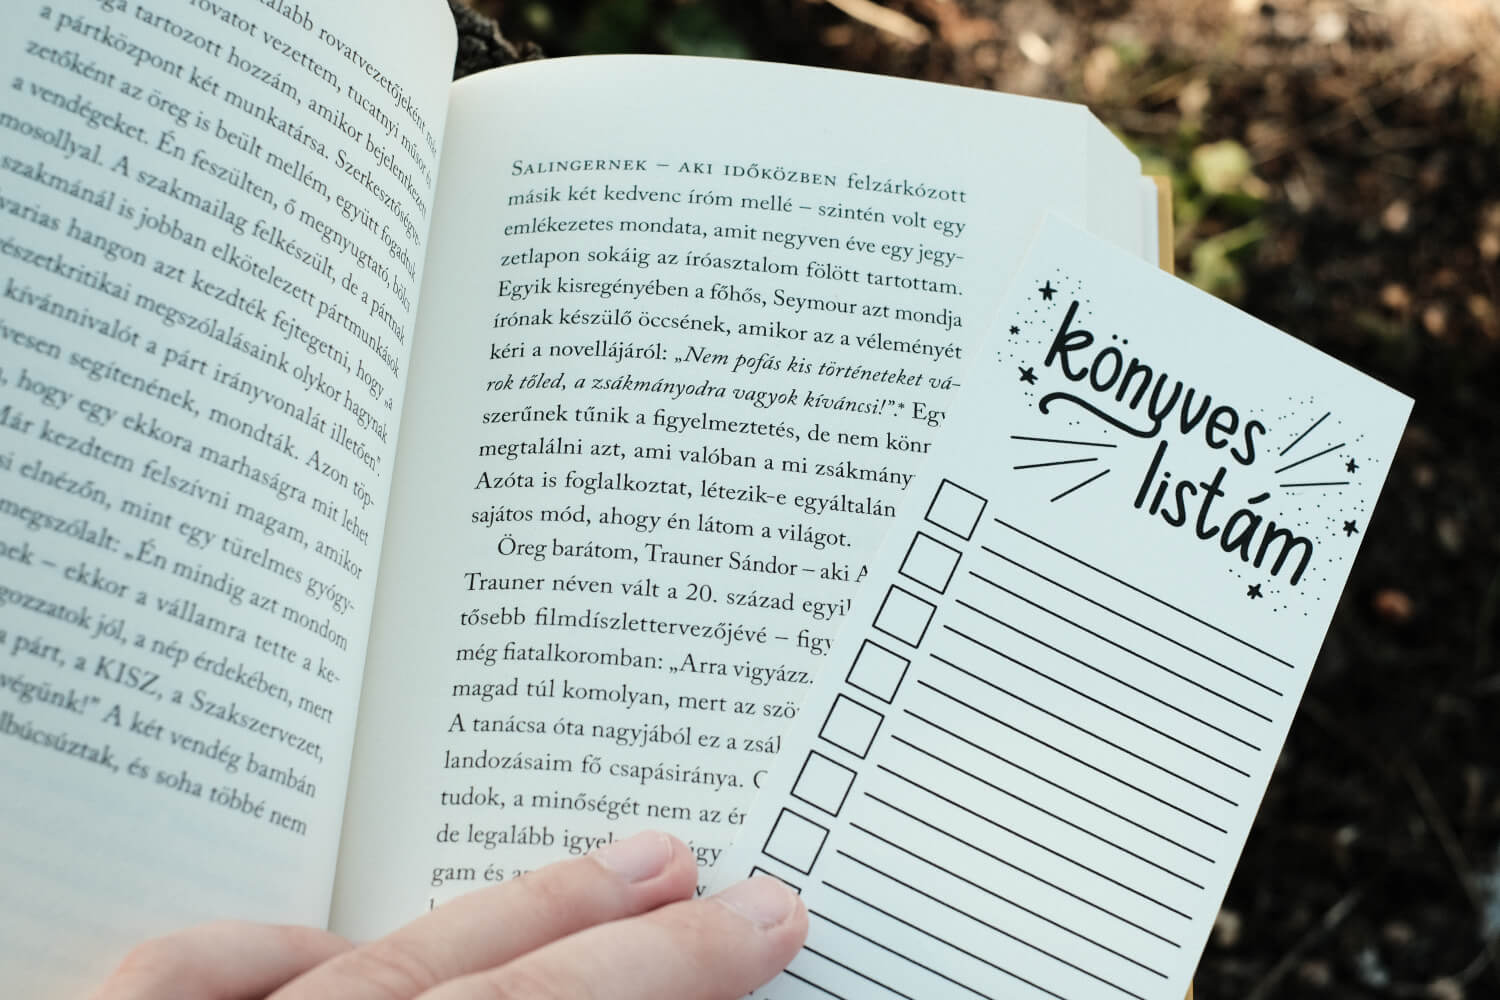 alabb rovatvezetőjeként már
rovatot vezettem, tucatnyi műsor és
tartozott hozzám, amikor bejelentkezett
a pártközpont két munkatársa. Szerkesztőségve-
zetőként az öreg is beült mellém, együtt fogadtuk
a vendégeket. Én feszülten, ő megnyugtató, bölcs
mosollyal. A szakmailag felkészült, de a pártnak
szakmánál is jobban elkötelezett pártmunkások
varias hangon azt kezdték fejtegetni, hogy „a
észetkritikai megszólalásaink olykor hagynak
kívánnivalót a párt irányvonalát illetően”.
vesen segítenének, mondták. Azon töp-
hogy egy ekkora marhaságra mit lehet
Már kezdtem felszívni magam, amikor
si elnézőn, mint egy türelmes gyógy-
megszólalt: „Én mindig azt mondom
nek – ekkor a vállamra tette a ke-
gozzatok jól, a nép érdekében, mert
a párt, a KISZ, a Szakszervezet,
végünk!” A két vendég bambán
lbúcsúztak, és soha többé nem
SALINGERNEK – AKI IDŐKÖZBEN felzárkózott
másik két kedvenc íróm mellé – szintén volt egy
emlékezetes mondata, amit negyven éve egy jegy-
zetlapon sokáig az íróasztalom fölött tartottam.
Egyik kisregényében a főhős, Seymour azt mondja
írónak készülő öccsének, amikor az a véleményét
kéri a novellájáról: „Nem pofás kis történeteket vá-
rok tőled, a zsákmányodra vagyok kíváncsi!”.* Egy
szerűnek tűnik a figyelmeztetés, de nem könn
megtalálni azt, ami valóban a mi zsákmány
Azóta is foglalkoztat, létezik-e egyáltalán
sajátos mód, ahogy én látom a világot.
Öreg barátom, Trauner Sándor – aki A
Trauner néven vált a 20. század egyik
tősebb filmdíszlettervezőjévé – figy
még fiatalkoromban: „Arra vigyázz.
magad túl komolyan, mert az szö
A tanácsa óta nagyjából ez a zsák
landozásaim fő csapásiránya.
tudok, a minőségét nem az ér
de legalább igyek úgy
gam és
könyves
listám